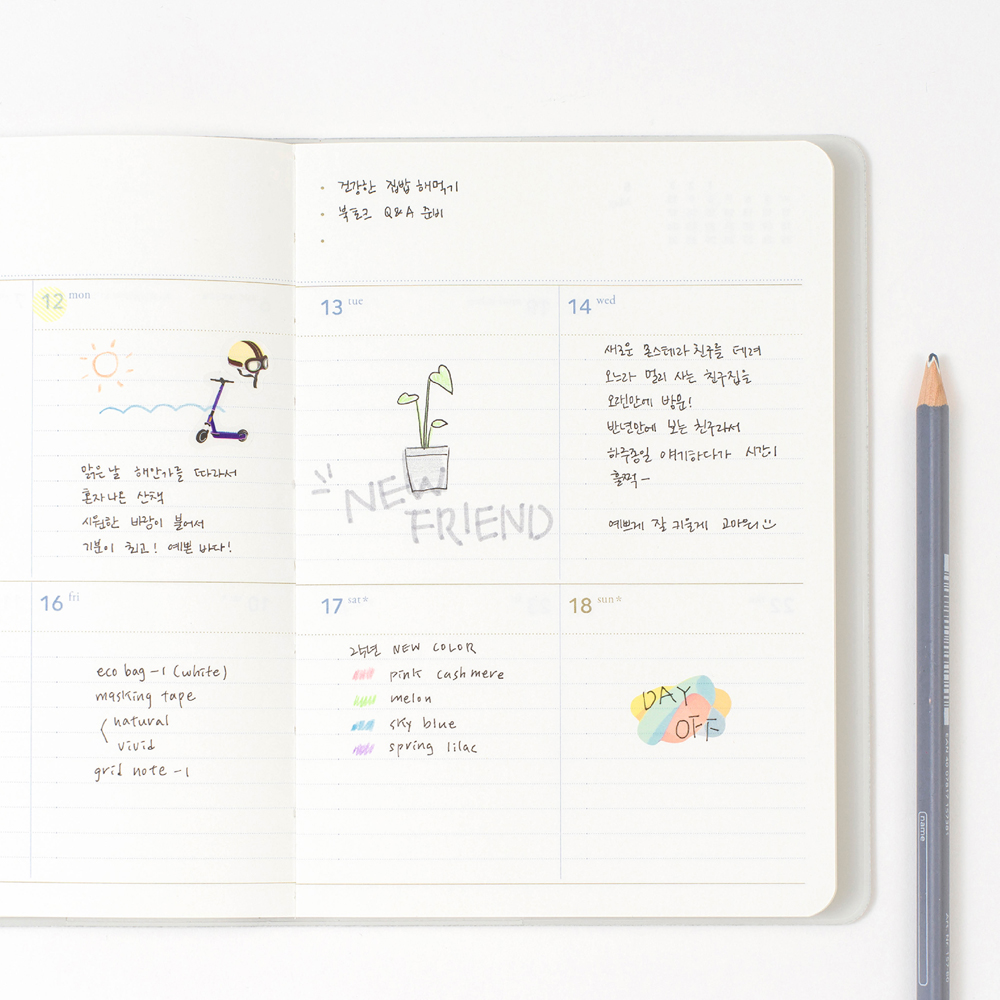 건강한 집밥 해먹기
북토크 Q&A 준비
12 mon
맑은날 해안가를 따라서
혼자 나온 산책
시원한 바람이 불어서
기분이 최고! 예쁜 바다!
13 tue
NEW
FRIEND
14 wed
새로운 몬스테라 친구를 데려
오느라 멀리 사는 친구집을
오랜만에 방문!
반년만에 보는 친구라서
하루종일 얘기하다가 시간이
훌쩍-
예쁘게 잘 키울게 고마워
16 fri
eco bag -1 (white)
masking tape
natural
vivid
grid note -1
17 sat*
NEW COLOR
pink cashmere
melon
sky blue
spring lilac
18 sun*
DAY
OFF
name